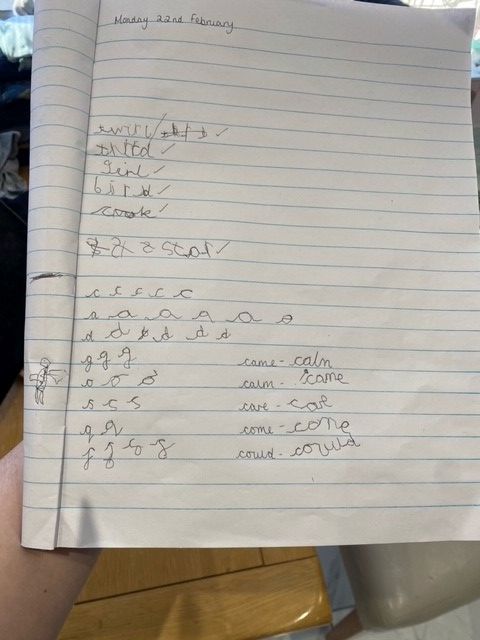 Monday 22nd February
swirl/ ✓
third ✓
girl ✓
bird ✓
✓
star ✓
c c c c c
a a a a a a
d d d d d d
g g g
o o o
s s s
q q
f f f f
came - calm
calm - came
care - care
come - come
could - could